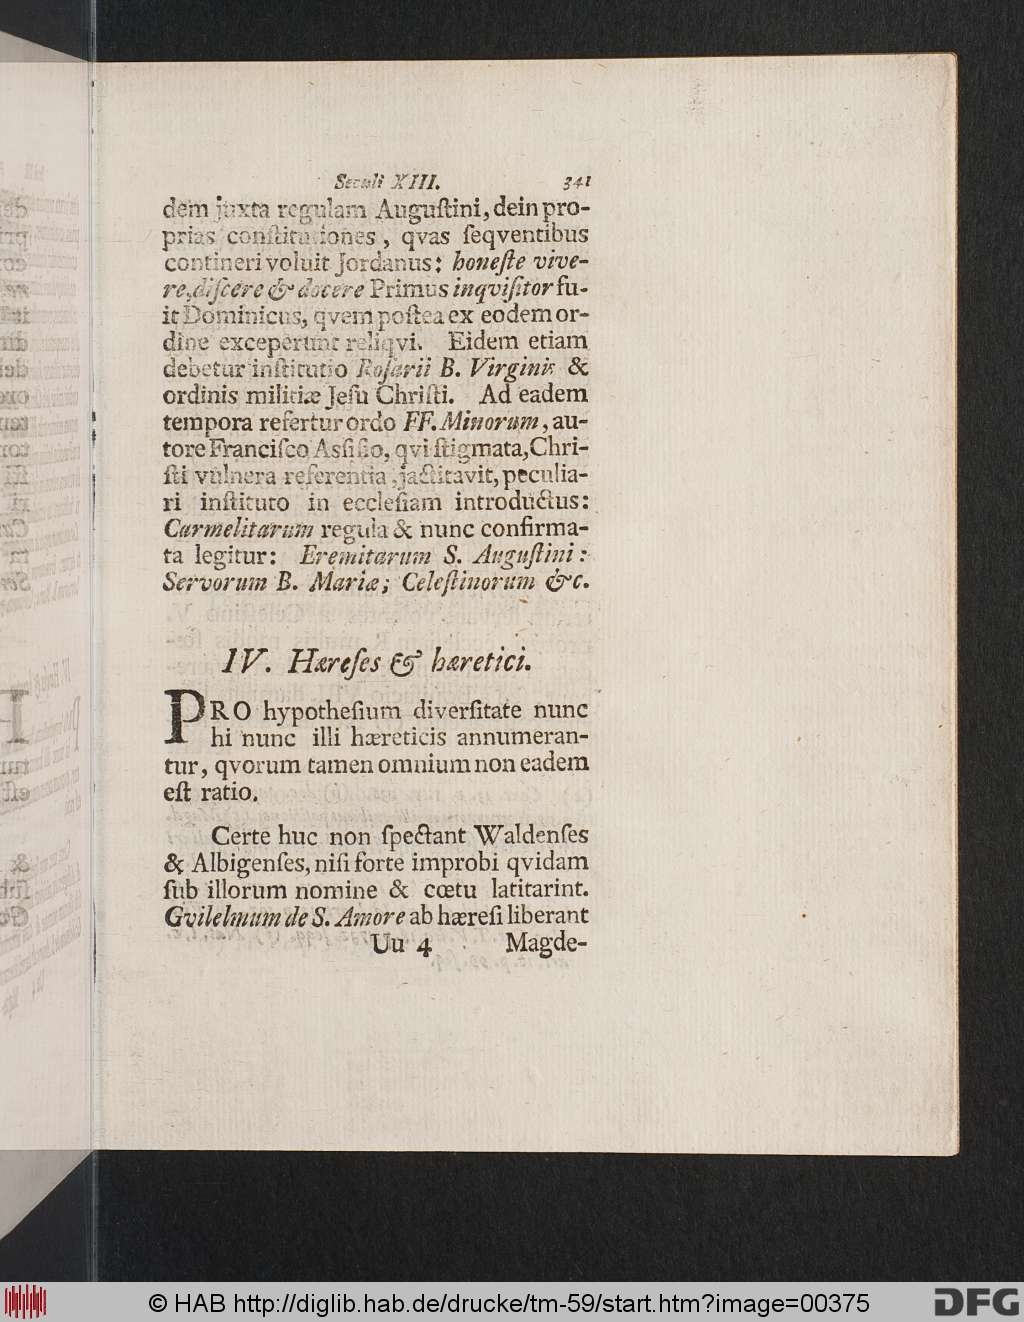 Seculi XIII. 341
dem juxta regulam Auguſtini, dein pro-
prias conſtitutiones, qvas ſeqventibus
contineri voluit Jordanus: honeſte vive-
re, diſcere & docere Primus inqviſitor fu-
it Dominicus, qvem poſtea ex eodem or-
dine exceperunt reliqvi. Eidem etiam
debetur inſtitutio Roſarii B. Virginis &
ordinis militiæ Jeſu Chriſti. Ad eadem
tempora refertur ordo FF. Minorum, au-
tore Franciſco Asſiſio, qvi ſtigmata, Chri-
ſti vulnera referentia, jactitavit, peculia-
ri inſtituto in eccleſiam introductus:
Carmelitarum regula & nunc confirma-
ta legitur: Eremitarum S. Auguſtini:
Servorum B. Mariæ; Celeſtinorum &c.
IV. Hæreſes & hæretici.
PRO hypotheſium diverſitate nunc
hi nunc illi hæreticis annumeran-
tur, qvorum tamen omnium non eadem
eſt ratio.
Certe huc non ſpectant Waldenſes
& Albigenſes, niſi forte improbi qvidam
ſub illorum nomine & cœtu latitarint.
Gvilelmum de S. Amore ab hæreſi liberant
Uu 4 Magde-
© HAB http://diglib.hab.de/drucke/tm-59/start.htm?image=00375
DFG